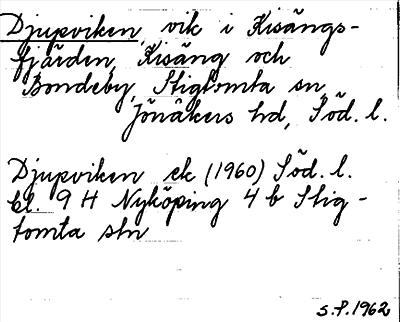 Djupviken, vik i Kisängs-
fjärden, Kisäng och
Bondeby, Stigtomta sn,
Jönåkers hd, Söd. l.
Djupviken ek (1960) Söd. l.
bl. 9 H Nyköping 4 b Stig-
tomta sn
S.P. 1962